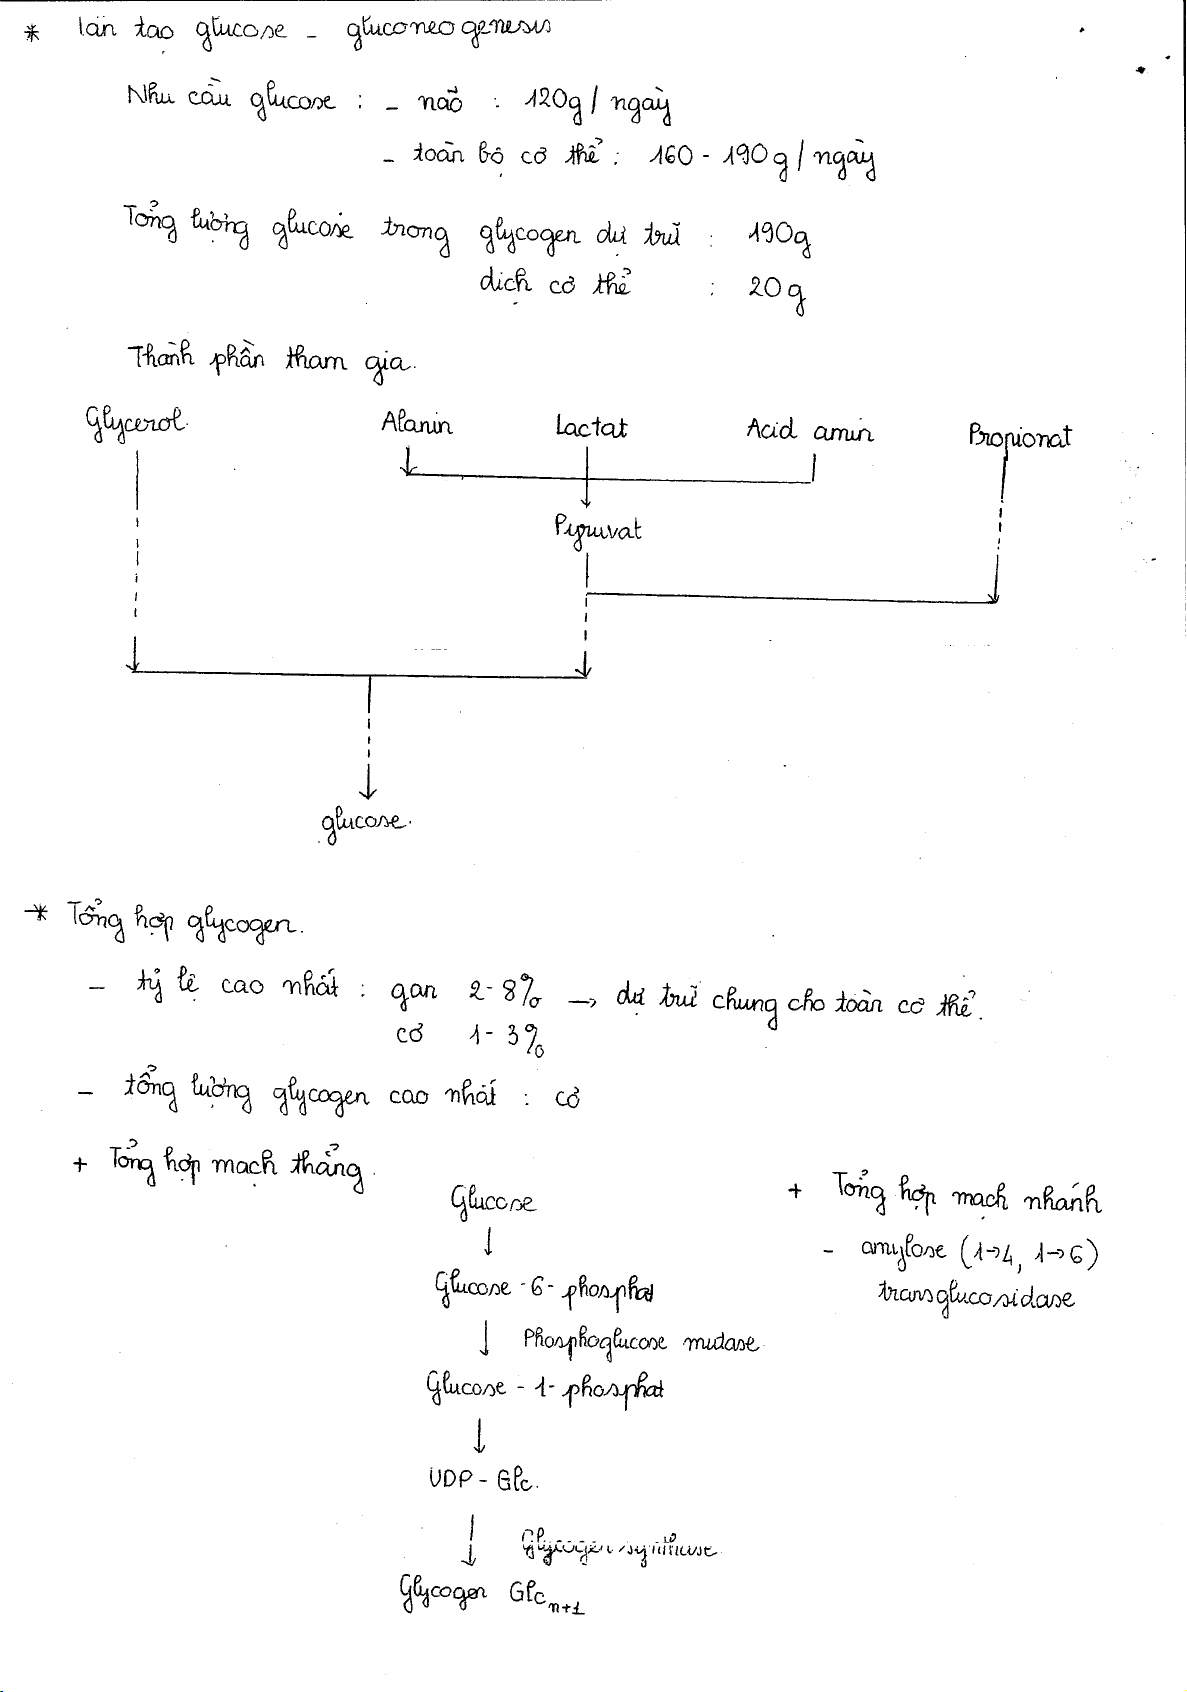 * Tân tạo glucose - gluconeogenesis
Nhu cầu glucose : - não : 120g / ngày
- toàn bộ cơ thể : 160 - 190g / ngày
Tổng lượng glucose trong glycogen dự trữ : 190g
dịch cơ thể : 20g
Thành phần tham gia.
Glycerol Alanin Lactat Acid amin Propionat
Pyruvat
glucose.
* Tổng hợp glycogen.
- tỷ lệ cao nhất : gan 2-8% → dự trữ chung cho toàn cơ thể.
cơ 1-3%
- tổng lượng glycogen cao nhất : cơ
+ Tổng hợp mạch thẳng.
Glucose
+ Tổng hợp mạch nhánh
- amylose (1→4, 1→6)
transglucosidase
Glucose-6-phosphat
Phosphoglucose mutase
Glucose-1-phosphat
UDP-Glc.
Glycogen synthase
Glycogen Glc n+1